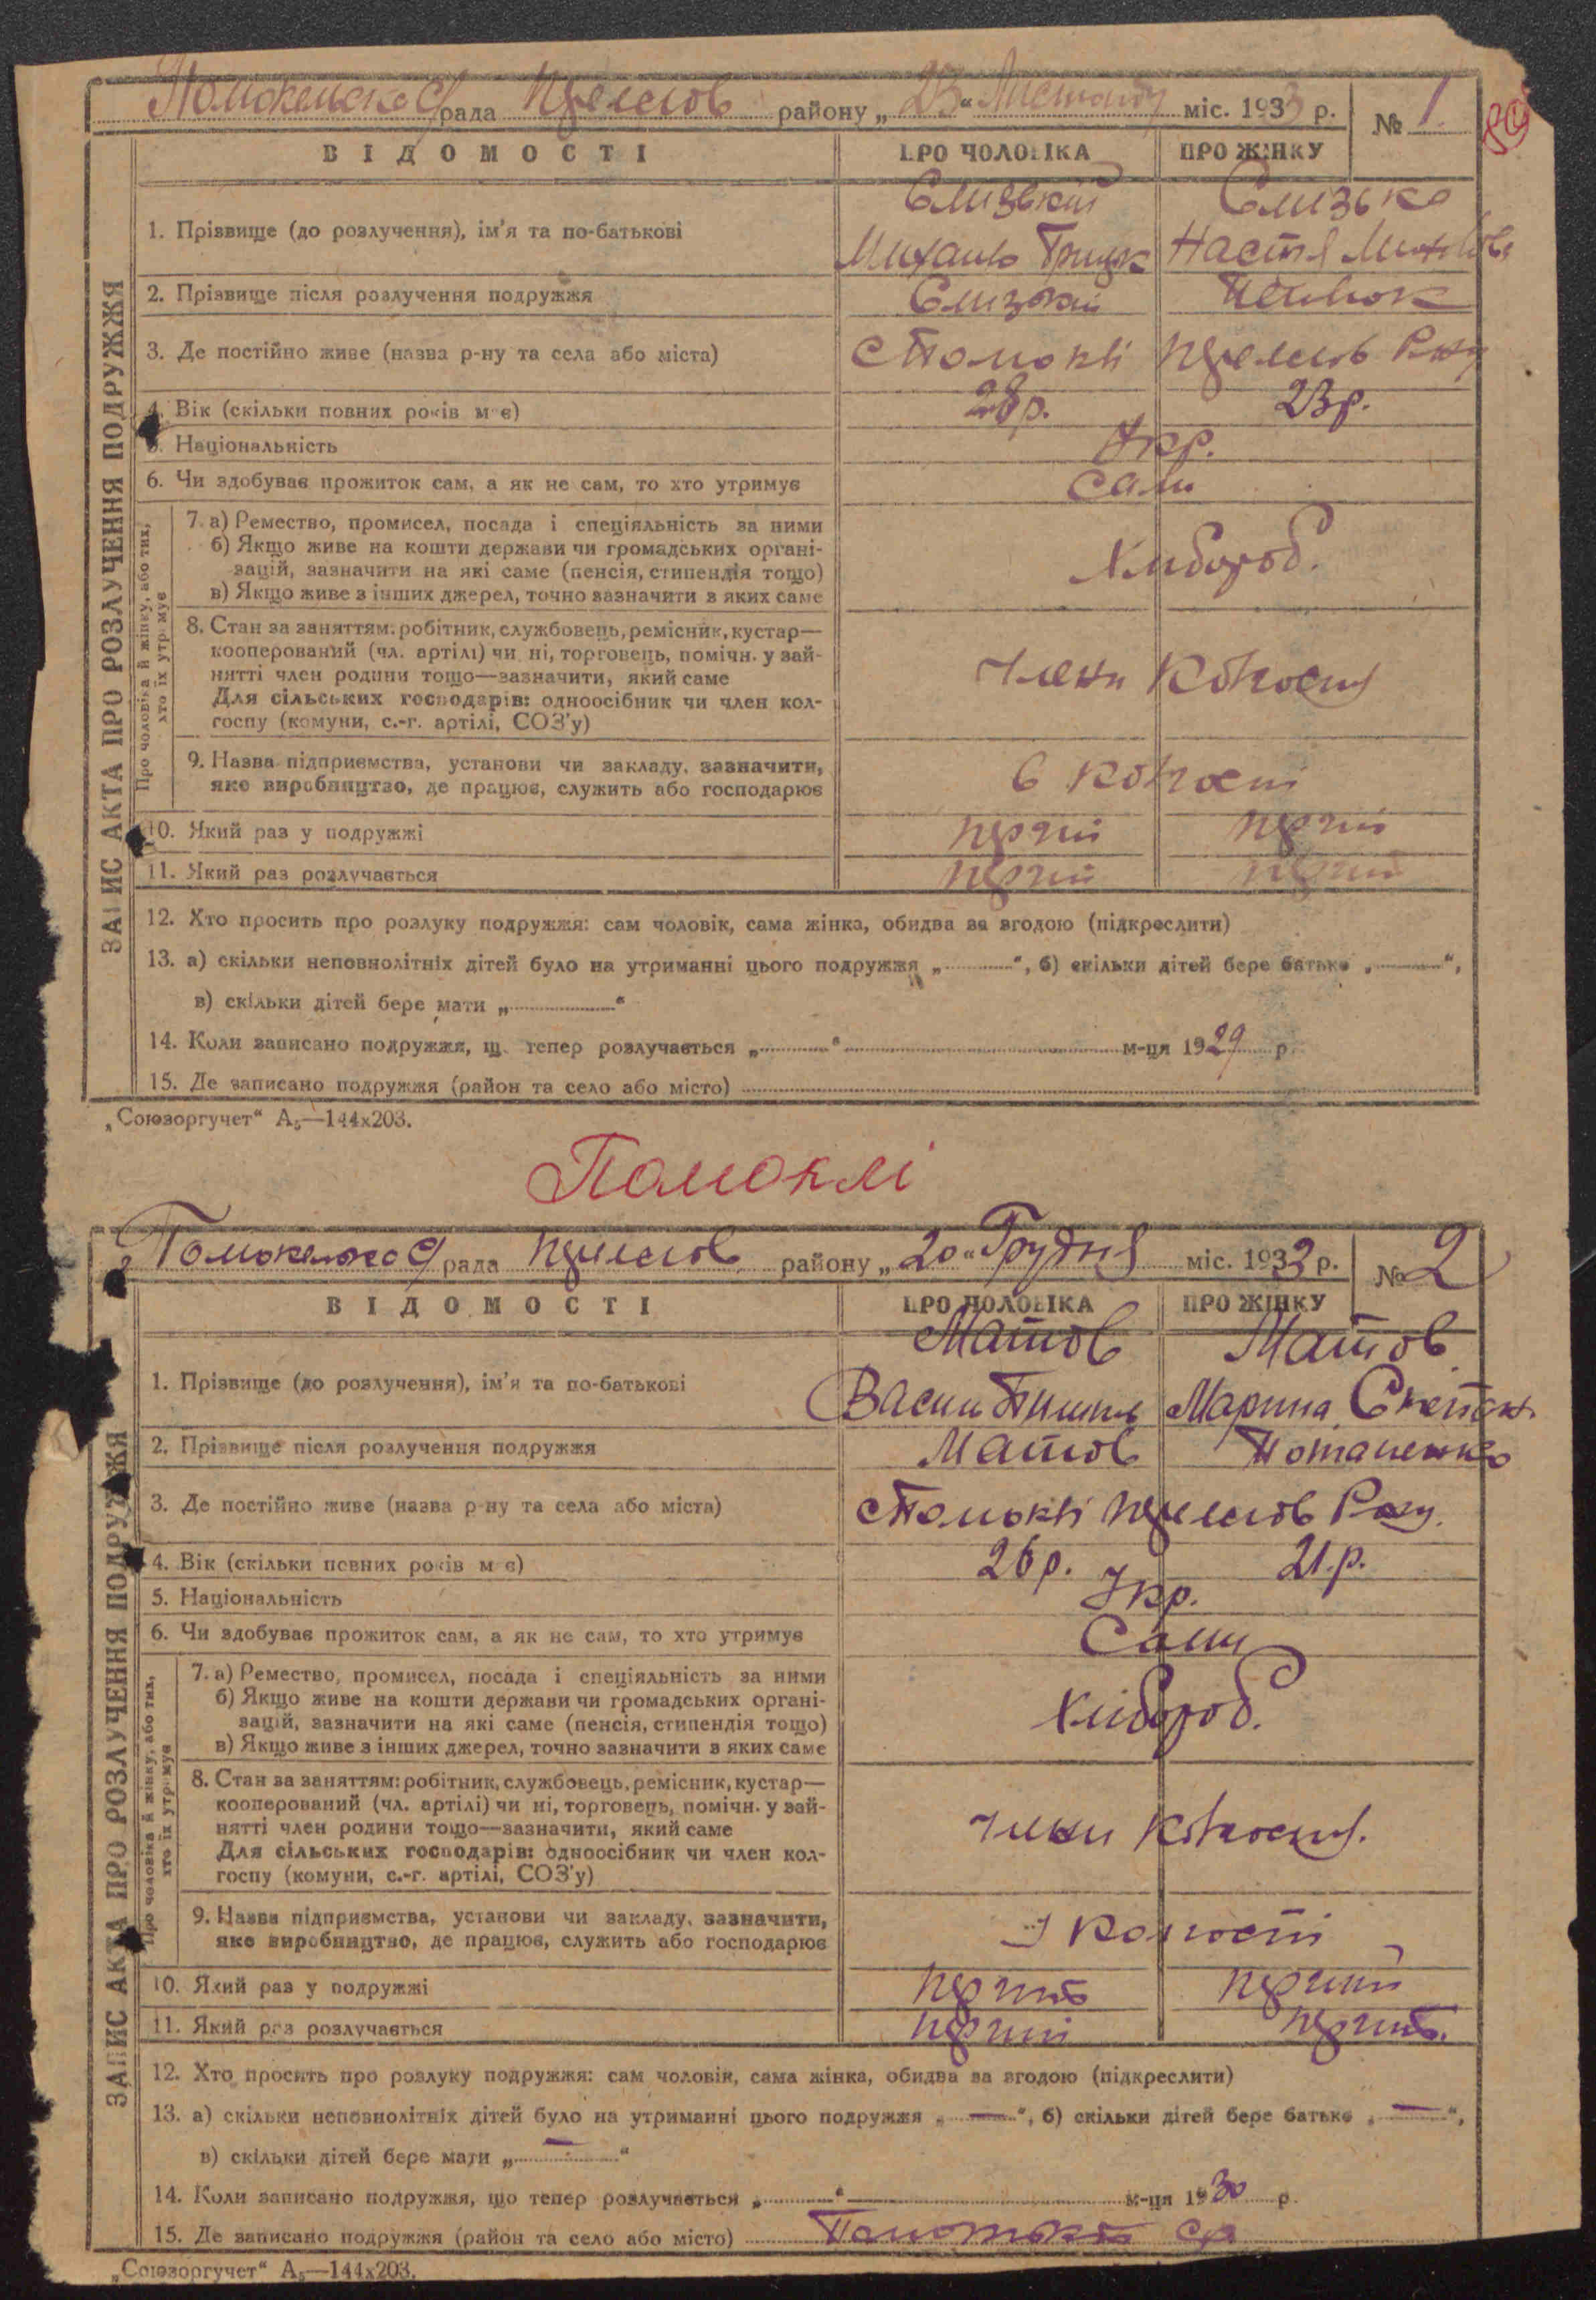 рада району „ 23 “ Листопаду міс. 1933 р. № 1
ВІДОМОСТІ ПРО ЧОЛОВІКА ПРО ЖІНКУ
Єлизький Єлизька
1. Прізвище (до розлучення), ім'я та по-батькові
Михайло Грицьк Настя
2. Прізвище після розлучення подружжя Єлизький
3. Де постійно живе (назва р-ну та села або міста)
4. Вік (скільки повних років має) 28 р. 23 р.
5. Національність Укр.
6. Чи здобував прожиток сам, а як не сам, то хто утримує Сами
7. а) Ремество, промисел, посада і спеціяльність за ними
б) Якщо живе на кошти держави чи громадських органі-
зацій, зазначити на які саме (пенсія, стипендія тощо) Хлібороб.
в) Якщо живе з інших джерел, точно зазначити з яких саме
8. Стан за заняттям: робітник, службовець, ремісник, кустар—
кооперований (чл. артілі) чи ні, торговець, помічн. у зай-
нятті член родини тощо—зазначити, який саме Члени
Для сільських господарів: одноосібник чи член кол-
госпу (комуни, с.-г. артілі, СОЗ'у)
9. Назва підприємства, установи чи закладу, зазначити,
яке виробництво, де працює, служить або господарює в колгоспі
10. Який раз у подружжі перший перший
11. Який раз розлучається перший перший
12. Хто просить про розлуку подружжя: сам чоловік, сама жінка, обидва за згодою (підкреслити)
13. а) скільки неповнолітніх дітей було на утриманні цього подружжя „ “, б) скільки дітей бере батько „ “,
в) скільки дітей бере мати „ “
14. Коли записано подружжя, що тепер розлучається „ “ м-ця 1929 р.
15. Де записано подружжя (район та село або місто)
ЗАПИС АКТА ПРО РОЗЛУЧЕННЯ ПОДРУЖЖЯ
Про чоловіка й жінку, або тих,
хто їх утримує
„Союзоргучет“ А₅—144х203.
Помоклі
рада району „ 20 “ Грудня міс. 1933 р. № 2
ВІДОМОСТІ ПРО ЧОЛОВІКА ПРО ЖІНКУ
Матов Матов
1. Прізвище (до розлучення), ім'я та по-батькові
Васил Марина Степан.
2. Прізвище після розлучення подружжя Матов Потапенко
3. Де постійно живе (назва р-ну та села або міста)
4. Вік (скільки повних років має) 26 р. 21.р.
5. Національність Укр.
6. Чи здобував прожиток сам, а як не сам, то хто утримує Сами
7. а) Ремество, промисел, посада і спеціяльність за ними
б) Якщо живе на кошти держави чи громадських органі-
зацій, зазначити на які саме (пенсія, стипендія тощо) Хлібороб.
в) Якщо живе з інших джерел, точно зазначити з яких саме
8. Стан за заняттям: робітник, службовець, ремісник, кустар—
кооперований (чл. артілі) чи ні, торговець, помічн. у зай-
нятті член родини тощо—зазначити, який саме Члени
Для сільських господарів: одноосібник чи член кол-
госпу (комуни, с.-г. артілі, СОЗ'у)
9. Назва підприємства, установи чи закладу, зазначити,
яке виробництво, де працює, служить або господарює У колгоспі
10. Який раз у подружжі перший перший
11. Який раз розлучається перший перший.
12. Хто просить про розлуку подружжя: сам чоловік, сама жінка, обидва за згодою (підкреслити)
13. а) скільки неповнолітніх дітей було на утриманні цього подружжя „ — “, б) скільки дітей бере батько „ — “,
в) скільки дітей бере мати „ — “
14. Коли записано подружжя, що тепер розлучається „ “ м-ця 1930 р.
15. Де записано подружжя (район та село або місто)
ЗАПИС АКТА ПРО РОЗЛУЧЕННЯ ПОДРУЖЖЯ
Про чоловіка й жінку, або тих,
хто їх утримує
„Союзоргучет“ А₅—144х203.